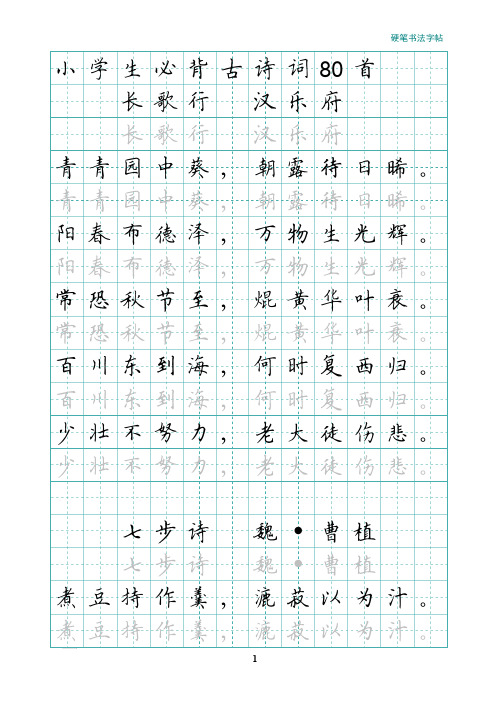 硬笔书法字帖
小学生必背古诗词80首
长歌行 汉乐府
长歌行 汉乐府
青青园中葵，朝露待日晞。
青青园中葵，朝露待日晞。
阳春布德泽，万物生光辉。
阳春布德泽，万物生光辉。
常恐秋节至，焜黄华叶衰。
常恐秋节至，焜黄华叶衰。
百川东到海，何时复西归。
百川东到海，何时复西归。
少壮不努力，老大徒伤悲。
少壮不努力，老大徒伤悲。
七步诗 魏•曹植
七步诗 魏•曹植
煮豆持作羹，漉菽以为汁。
煮豆持作羹，漉菽以为汁。
1